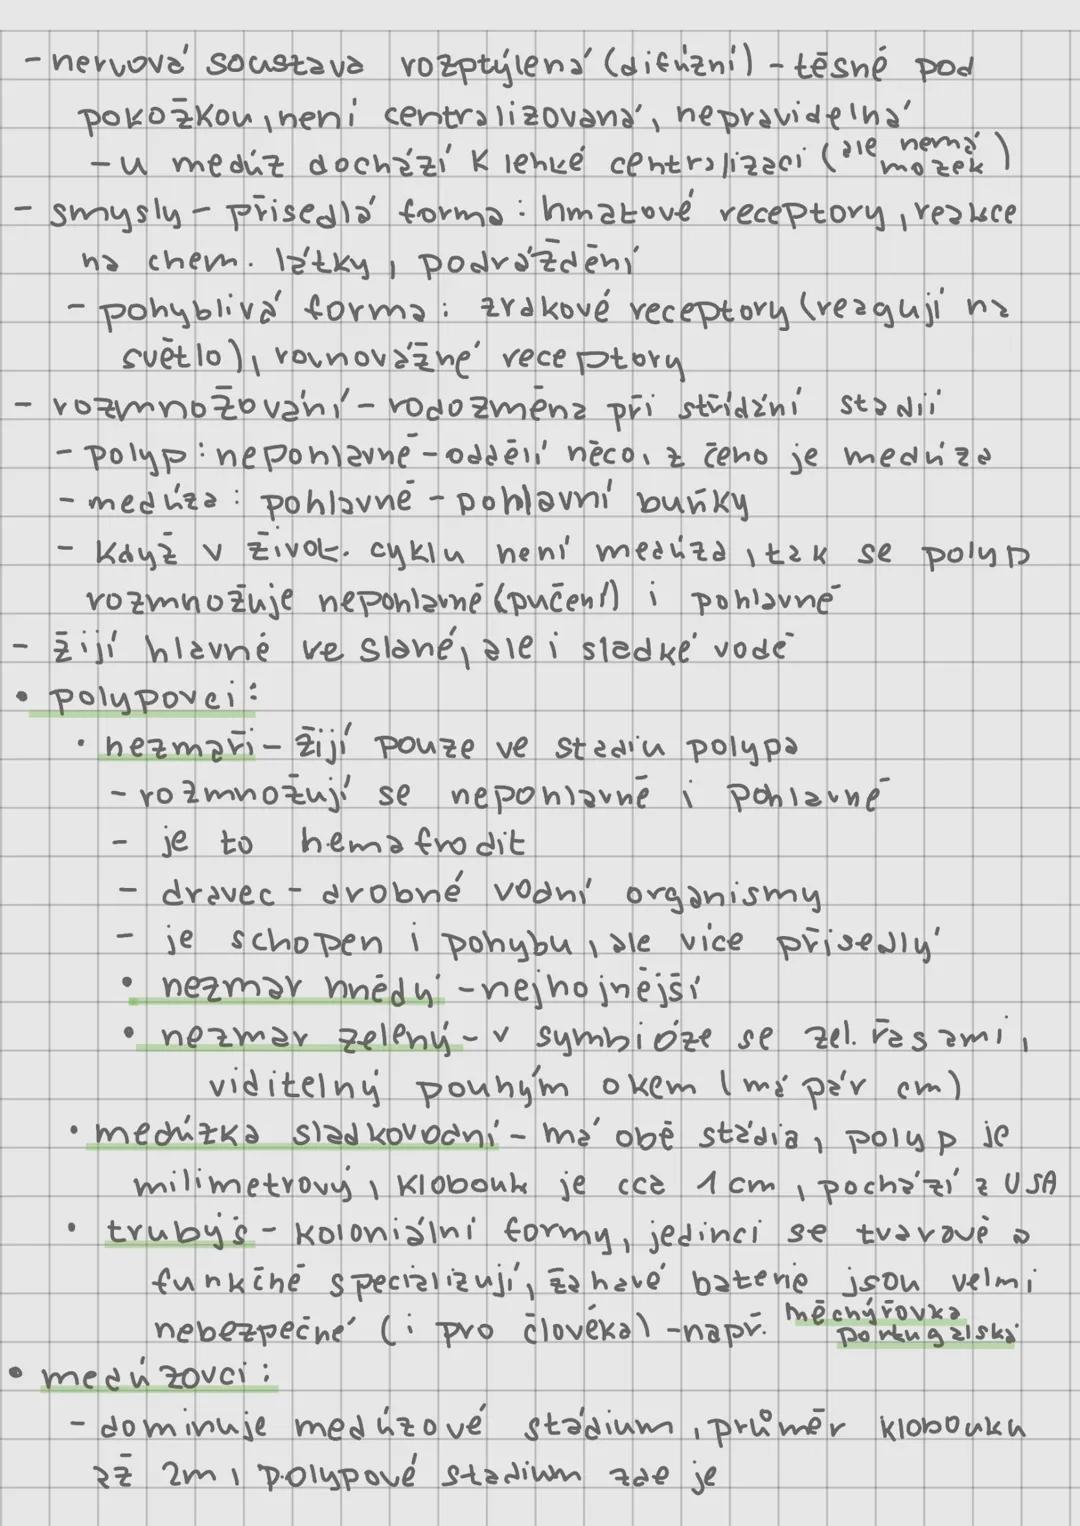 - nervová soustava rozptýlená (difúzní) - těsně pod
pokožkou, není centralizovaná, nepravidelná
- u medúz dochází k lehké centralizaci (ale nemá mozek)
- smysly - přisedlá forma: hmatové receptory, reakce
na chem. látky, podráždění
- pohyblivá forma: zrakové receptory (reagují na
světlo), rovnovážné receptory
- rozmnožování - rodozměna při střídání stadií
- polyp: nepohlavně - oddělí něco, z čeho je medúza
- medúza: pohlavně - pohlavní buňky
- když v život. cyklu není medúza, tak se polyp
rozmnožuje nepohlavně (pučení) i pohlavně
- žijí hlavně ve slané, ale i sladké vodě
• polypovci:
• nezmaři - žijí pouze ve stadiu polypa
- rozmnožují se nepohlavně i pohlavně
- je to hemafrodit
- dravec - drobné vodní organismy
- je schopen i pohybu, ale více přisedlý
• nezmar hnědý - nejhojnější
• nezmar zelený - v symbióze se zel. řasami,
viditelný pouhým okem (má pár cm)
• medúzka sladkovodní - má obě stádia, polyp je
milimetrový, klobouk je cca 1 cm, pochází z USA
• trubýš - koloniální formy, jedinci se tvarově a
funkčně specializují, žahavé baterie jsou velmi
nebezpečné (i pro člověka) - např. měchýřovka portugalská
• medúzovci:
- dominuje medúzové stádium, průměr klobouku
až 2m, polypové stadium zde je